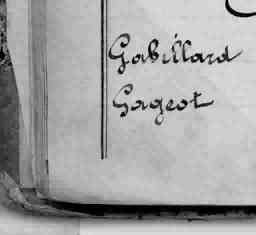 Gabillard
Gageot